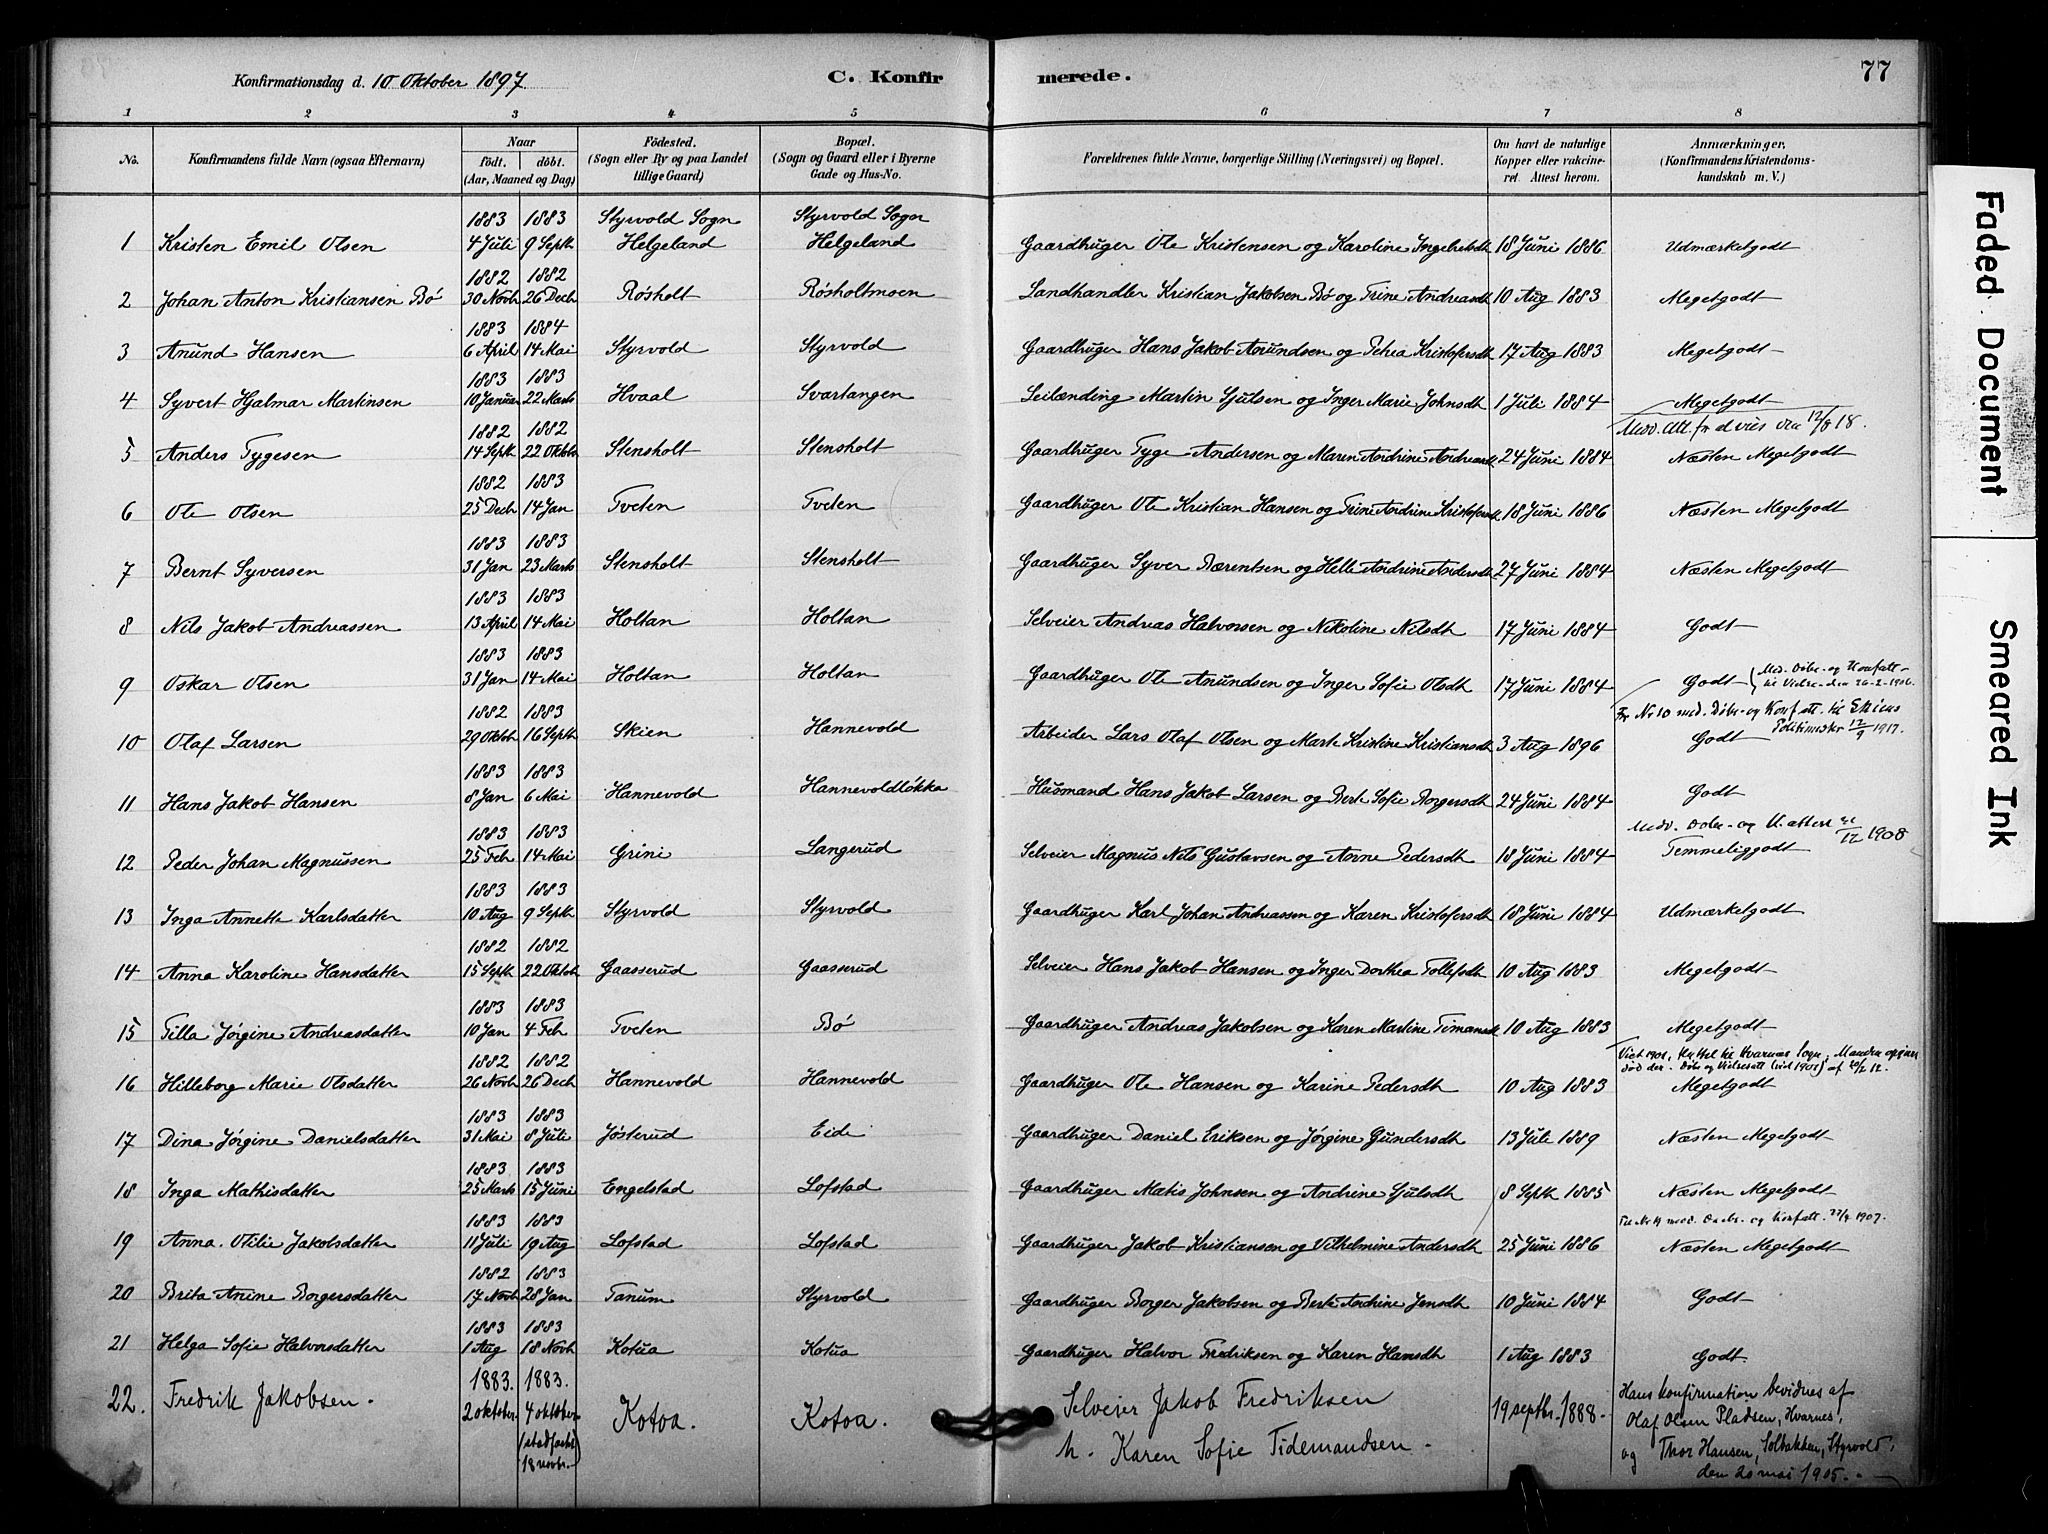 Konfirmationsdag d. 10 Oktober 1897
C. Konfirmerede.
77
1 2 3 4 5 6 7 8
No. | Konfirmandens fulde Navn (ogsaa Efternavn) | Naar født. døbt. (Aar, Maaned og Dag) | Fødested. (Sogn eller By og paa Landet tillige Gaard) | Bopæl. (Sogn og Gaard eller i Byerne Gade og Hus-No. | Forældrenes fulde Navne, borgerlige Stilling (Næringsvei) og Bopæl. | Om havt de naturlige Kopper eller vakcineret. Attest herom. | Anmærkninger. (Konfirmandens Kristendomskundskab m. V.)
1 Kristen Emil Olsen | 1883 4 Juli | 1883 9 Septb | Styrvold Sogn Helgeland | Styrvold Sogn Helgeland | Gaardbruger Ole Kristensen og Karoline Ingebretsdtr | 18 Juni 1886 | Udmærketgodt
2 Johan Anton Kristiansen Bö | 1882 30 Novb | 1882 26 Decb | Røsholt | Røsholtmoen | Landhandler Kristian Jakobsen Bö og Trine Andreasdt | 10 Aug 1883 | Megetgodt
3 Anund Hansen | 1883 6 April | 1884 14 Mai | Styrvold | Styrvold | Gaardbruger Hans Jakob Anundsen og Petrea Kristofersdt | 17 Aug 1883 | Megetgodt
4 Syvert Hjalmar Martinsen | 1883 10 Januar | 1883 22 Marts | Hvaal | Svartangen | Leilænding Martin Gjulsen og Inger Marie Johnsdt | 1 Juli 1884 | Megetgodt
5 Anders Tygesen | 1882 14 Septb | 1882 22 Oktbr | Stensholt | Stensholt | Gaardbruger Tyge Andersen og Maren Andrine Andreasdt | 24 Juni 1884 | Næsten Megetgodt
6 Ole Olsen | 1882 25 Decb | 1883 14 Jan | Tveten | Tveten | Gaardbruger Ole Kristian Hansen og Trine Andrine Kristofersdt | 18 Juni 1886 | Næsten Megetgodt
7 Bernt Syversen | 1883 31 Jan | 1883 23 Marts | Stensholt | Stensholt | Gaardbruger Syver Bærentsen og Helle Andrine Andersdt | 27 Juni 1884 | Næsten Megetgodt
8 Nils Jakob Andreassen | 1883 13 April | 1883 14 Mai | Holtan | Holtan | Selveier Andreas Halvorsen og Nikoline Nilsdt | 17 Juni 1884 | Godt
9 Oskar Olsen | 1883 31 Jan | 1883 14 Mai | Holtan | Holtan | Gaardbruger Ole Anundsen og Inger Sofie Olsdt | 17 Juni 1884 | Godt Med. Døbs- og Konfatt- til Vielse den 26-2-1906.
For No 10 med. Døbs- og Konf att. til Skiens Politimester 12/9 1917.
10 Olaf Larsen | 1882 29 Oktbr | 1883 16 Septb | Skien | Hannevold | Arbeider Lars Olaf Olsen og Marte Kristine Kristiansdt | 3 Aug 1896 | Godt
11 Hans Jakob Hansen | 1883 8 Jan | 1883 6 Mai | Hannevold | Hannevoldløkka | Husmand Hans Jakob Larsen og Berte Sofie Borgersdt | 24 Juni 1884 | Godt
12 Peder Johan Magnussen | 1883 25 Feb | 1883 14 Mai | Grini | Langerud | Selveier Magnus Nils Gustavsen og Anne Pedersdt | 18 Juni 1884 | Temmeliggodt 1908
13 Inga Annette Karlsdatter | 1883 10 Aug | 1883 9 Septb | Styrvold | Styrvold | Gaardbruger Karl Johan Andreassen og Karen Kristofersdt | 18 Juni 1884 | Udmærketgodt
14 Anna Karoline Hansdatter | 1882 15 Septb | 1882 22 Oktob | Gaasserud | Gaasserud | Selveier Hans Jakob Hansen og Inger Dorthea Tollefsdt | 10 Aug 1883 | Megetgodt
15 Tilla Jørgine Andreasdatter | 1883 10 Jan | 1883 4 Feb | Tveten | Bö | Gaardbruger Andreas Jakobsen og Karen Martine Timansdt | 10 Aug 1883 | Megetgodt
16 Hilleborg Marie Olsdatter | 1882 26 Novb | 1882 26 Decb | Hannevold | Hannevold | Gaardbruger Ole Hansen og Karine Pedersdt | 10 Aug 1883 | Megetgodt
17 Dina Jørgine Danielsdatter | 1883 31 Mai | 1883 8 Juli | Jösterud | Eide | Gaardbruger Daniel Eriksen og Jørgine Gundersdt | 13 Juli 1889 | Næsten Megetgodt
18 Inga Mathisdatter | 1883 25 Marts | 1883 15 Juni | Engelstad | Lofstad | Gaardbruger Matis Johnsen og Andrine Gjulsdt | 8 Septb 1885 | Næsten Megetgodt
19 Anna Otilie Jakobsdatter | 1883 11 Juli | 1883 19 Aug | Lofstad | Lofstad | Gaardbruger Jakob Kristiansen og Vilhelmine Andersdt | 25 Juni 1886 | Næsten Megetgodt
20 Brita Anine Borgersdatter | 1882 17 Novb | 1883 28 Jan | Tanum | Styrvold | Gaardbruger Borger Jakobsen og Berte Andrine Jensdt | 10 Juni 1884 | Godt
21 Helga Sofie Halvorsdatter | 1883 1 Aug | 1883 18 Novb | Kotua | Kotua | Gaardbruger Halvor Fredriksen og Karen Hansdt | 1 Aug 1883 | Godt
22. Fredrik Jakobsen. | 1883. 2 oktober. | 1883. 4 oktober (stadfæstet 18 novbr.) | Kotoa. | Kotoa. | Selveier Jakob Fredriksen h. Karen Sofie Tidemandsen. | 19 septbr. 1888. | Hans konfirmation bevidnes af Olaf Olsen Pladsen, Hvarnes, og Thor Hansen, Solbakken, Styrvold, den 20 mai 1905.
Faded Document
Smeared Ink